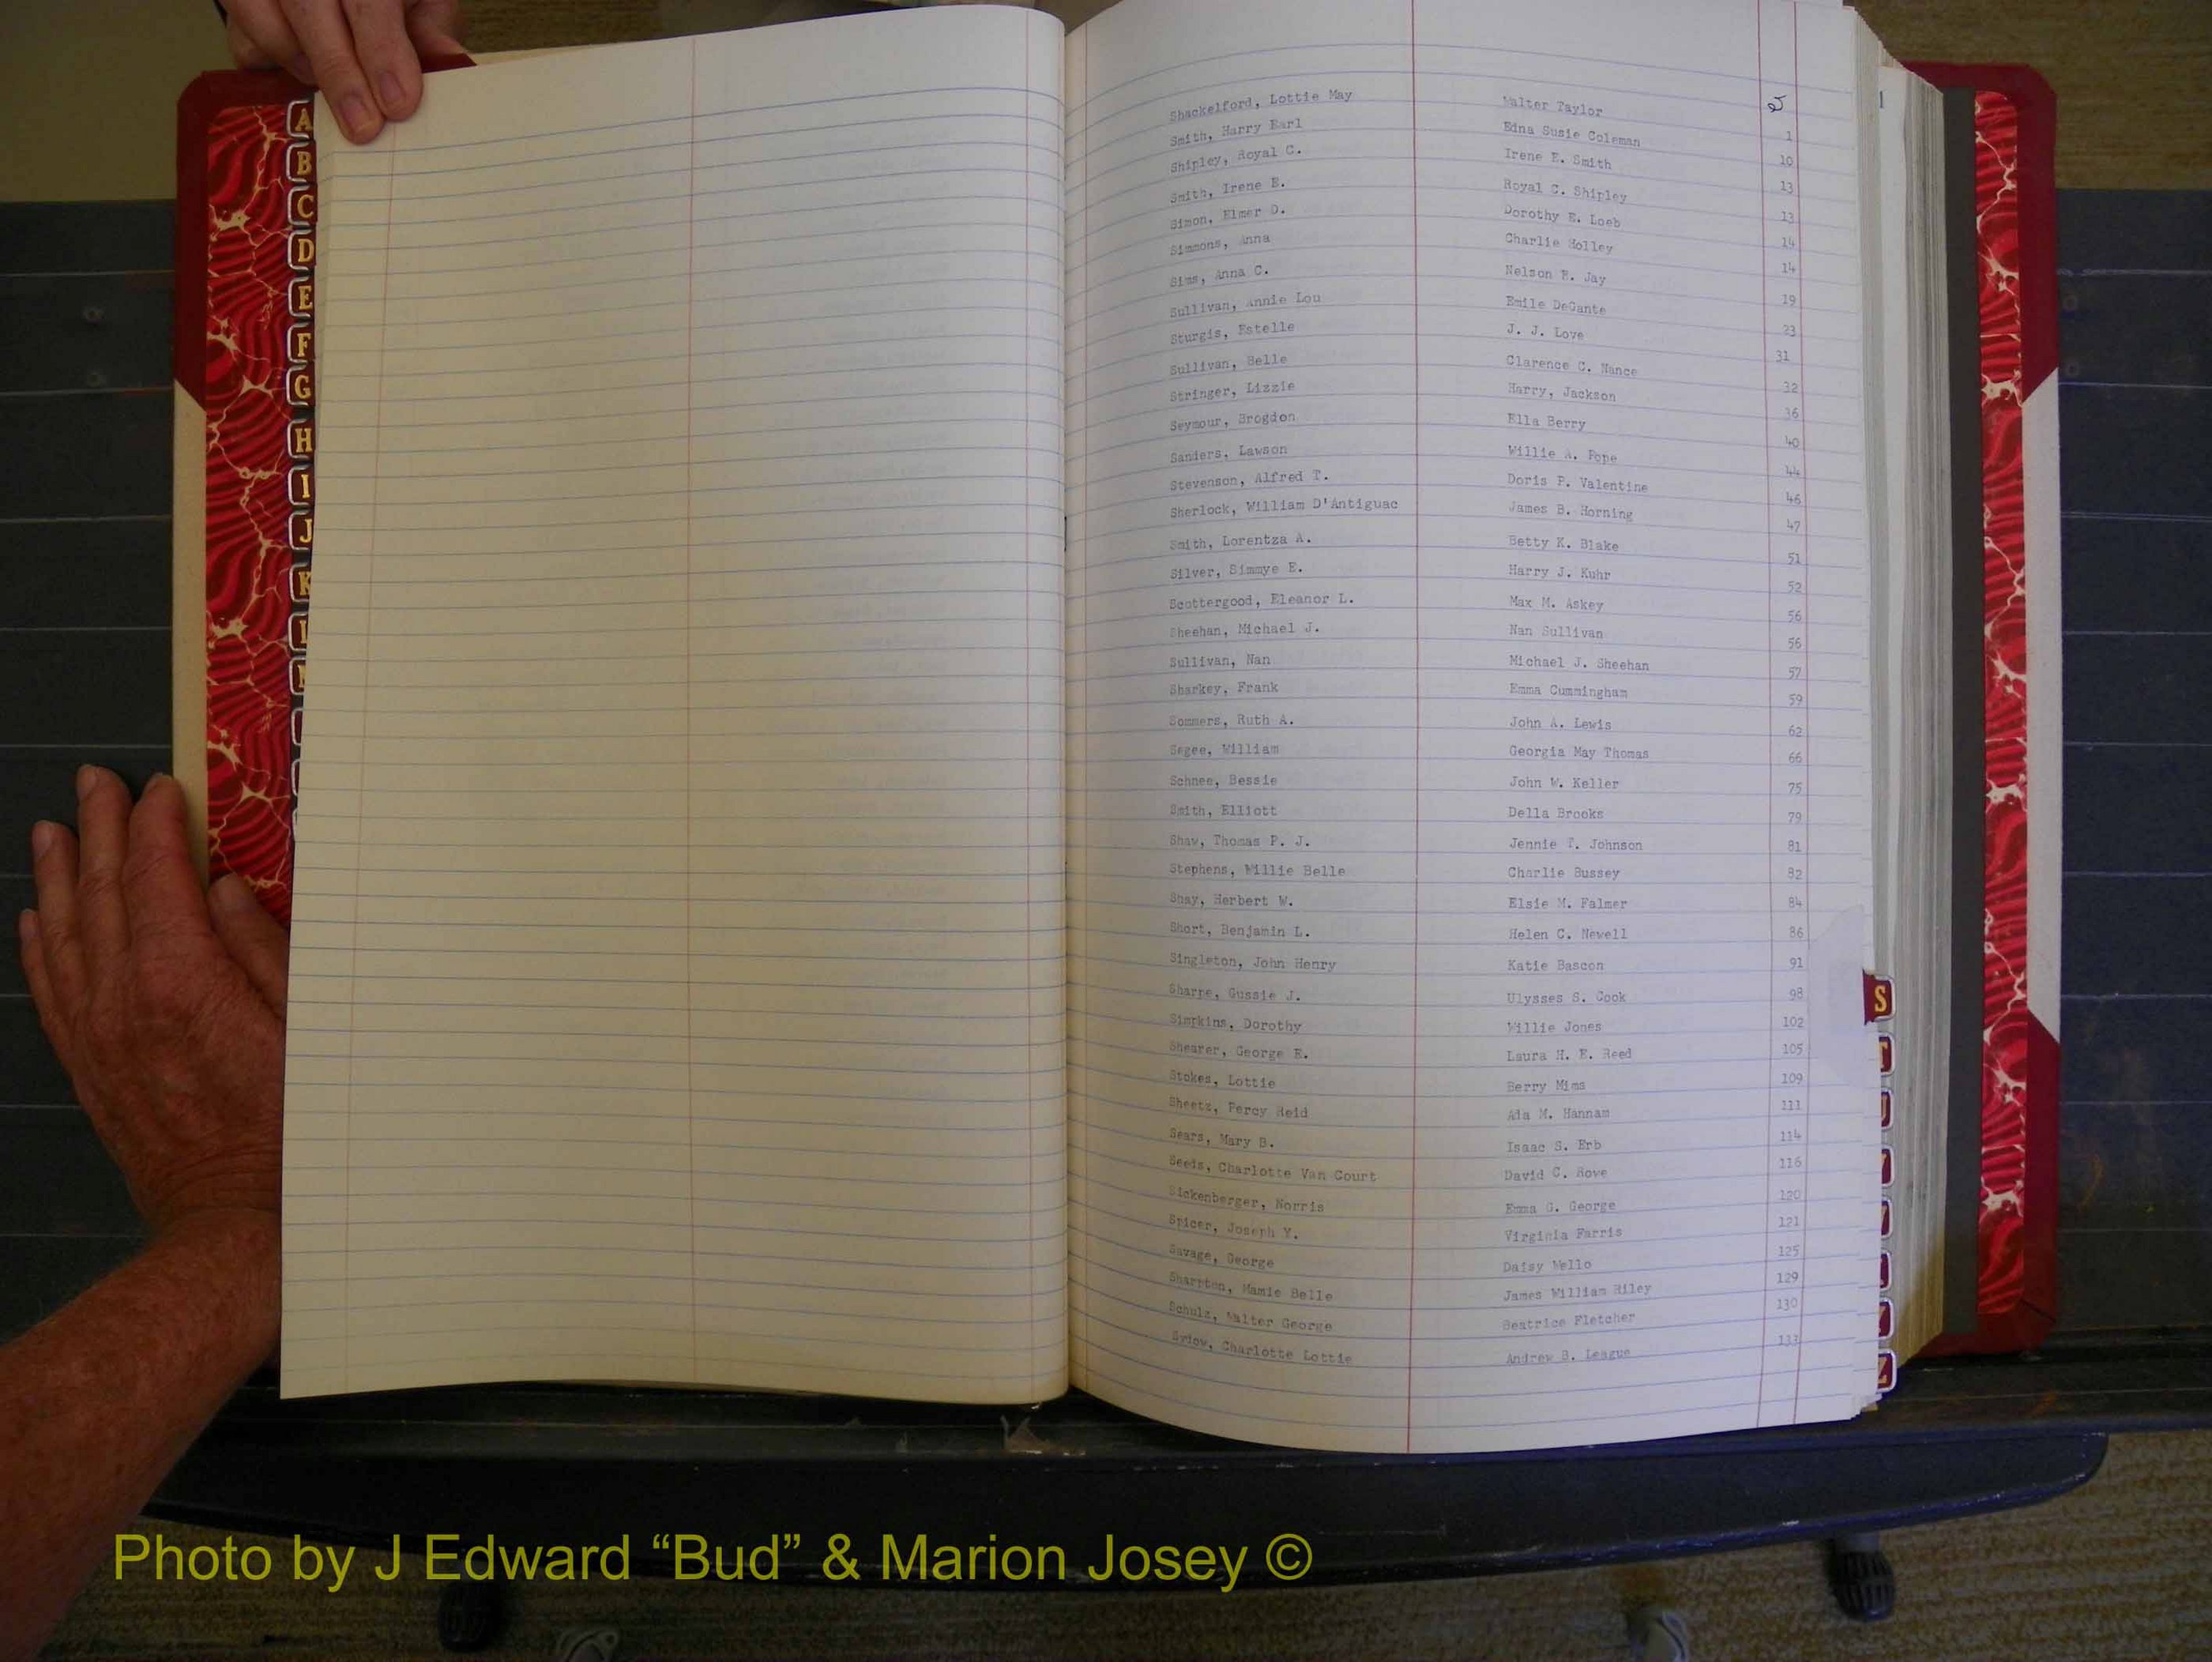 A
B
C
D
E
F
G
H
I
J
K
L
M
Shackelford, Lottie May Walter Taylor
Smith, Harry Earl Edna Susie Coleman 1
Shipley, Royal C. Irene E. Smith 10
Smith, Irene E. Royal C. Shipley 13
Simon, Elmer D. Dorothy E. Loeb 13
Simmons, Anna Charlie Holley 14
Sims, Anna C. Nelson E. Jay 14
Sullivan, Annie Lou Emile DeGante 19
Sturgis, Estelle J. J. Love 23
Sullivan, Belle Clarence C. Nance 31
Stringer, Lizzie Harry, Jackson 32
Seymour, Brogdon Ella Berry 36
Sanders, Lawson Willie A. Pope 40
Stevenson, Alfred T. Doris P. Valentine 44
Sherlock, William D'Antiguac James B. Horning 46
Smith, Lorentza A. Betty K. Blake 47
Silver, Simmye E. Harry J. Kuhr 51
Scottergood, Eleanor L. Max M. Askey 52
Sheehan, Michael J. Nan Sullivan 56
Sullivan, Nan Michael J. Sheehan 56
Sharkey, Frank Emma Cummingham 57
Sommers, Ruth A. John A. Lewis 59
Segee, William Georgia May Thomas 62
Schnee, Bessie John W. Keller 66
Smith, Elliott Della Brooks 75
Shaw, Thomas P. J. Jennie T. Johnson 79
Stephens, Willie Belle Charlie Bussey 81
Shay, Herbert W. Elsie M. Falmer 82
Short, Benjamin L. Helen C. Newell 84
Singleton, John Henry Katie Bascon 86
Sharpe, Gussie J. Ulysses S. Cook 91
Simpkins, Dorothy Willie Jones 98
Shearer, George E. Laura H. E. Reed 102
Stokes, Lottie Berry Mims 105
Sheetz, Percy Reid Ada M. Hannam 109
Sears, Mary B. Isaac S. Erb 111
Seeds, Charlotte Van Court David C. Rove 114
Sickenberger, Norris Emma G. George 116
Spicer, Joseph Y. Virginia Farris 120
Savage, George Daisy Wello 121
Sharpton, Mamie Belle James William Riley 125
Schulz, Walter George Beatrice Fletcher 129
Sydow, Charlotte Lottie Andrew B. League 130
133
S
T
U
Z
Photo by J Edward “Bud” & Marion Josey ©